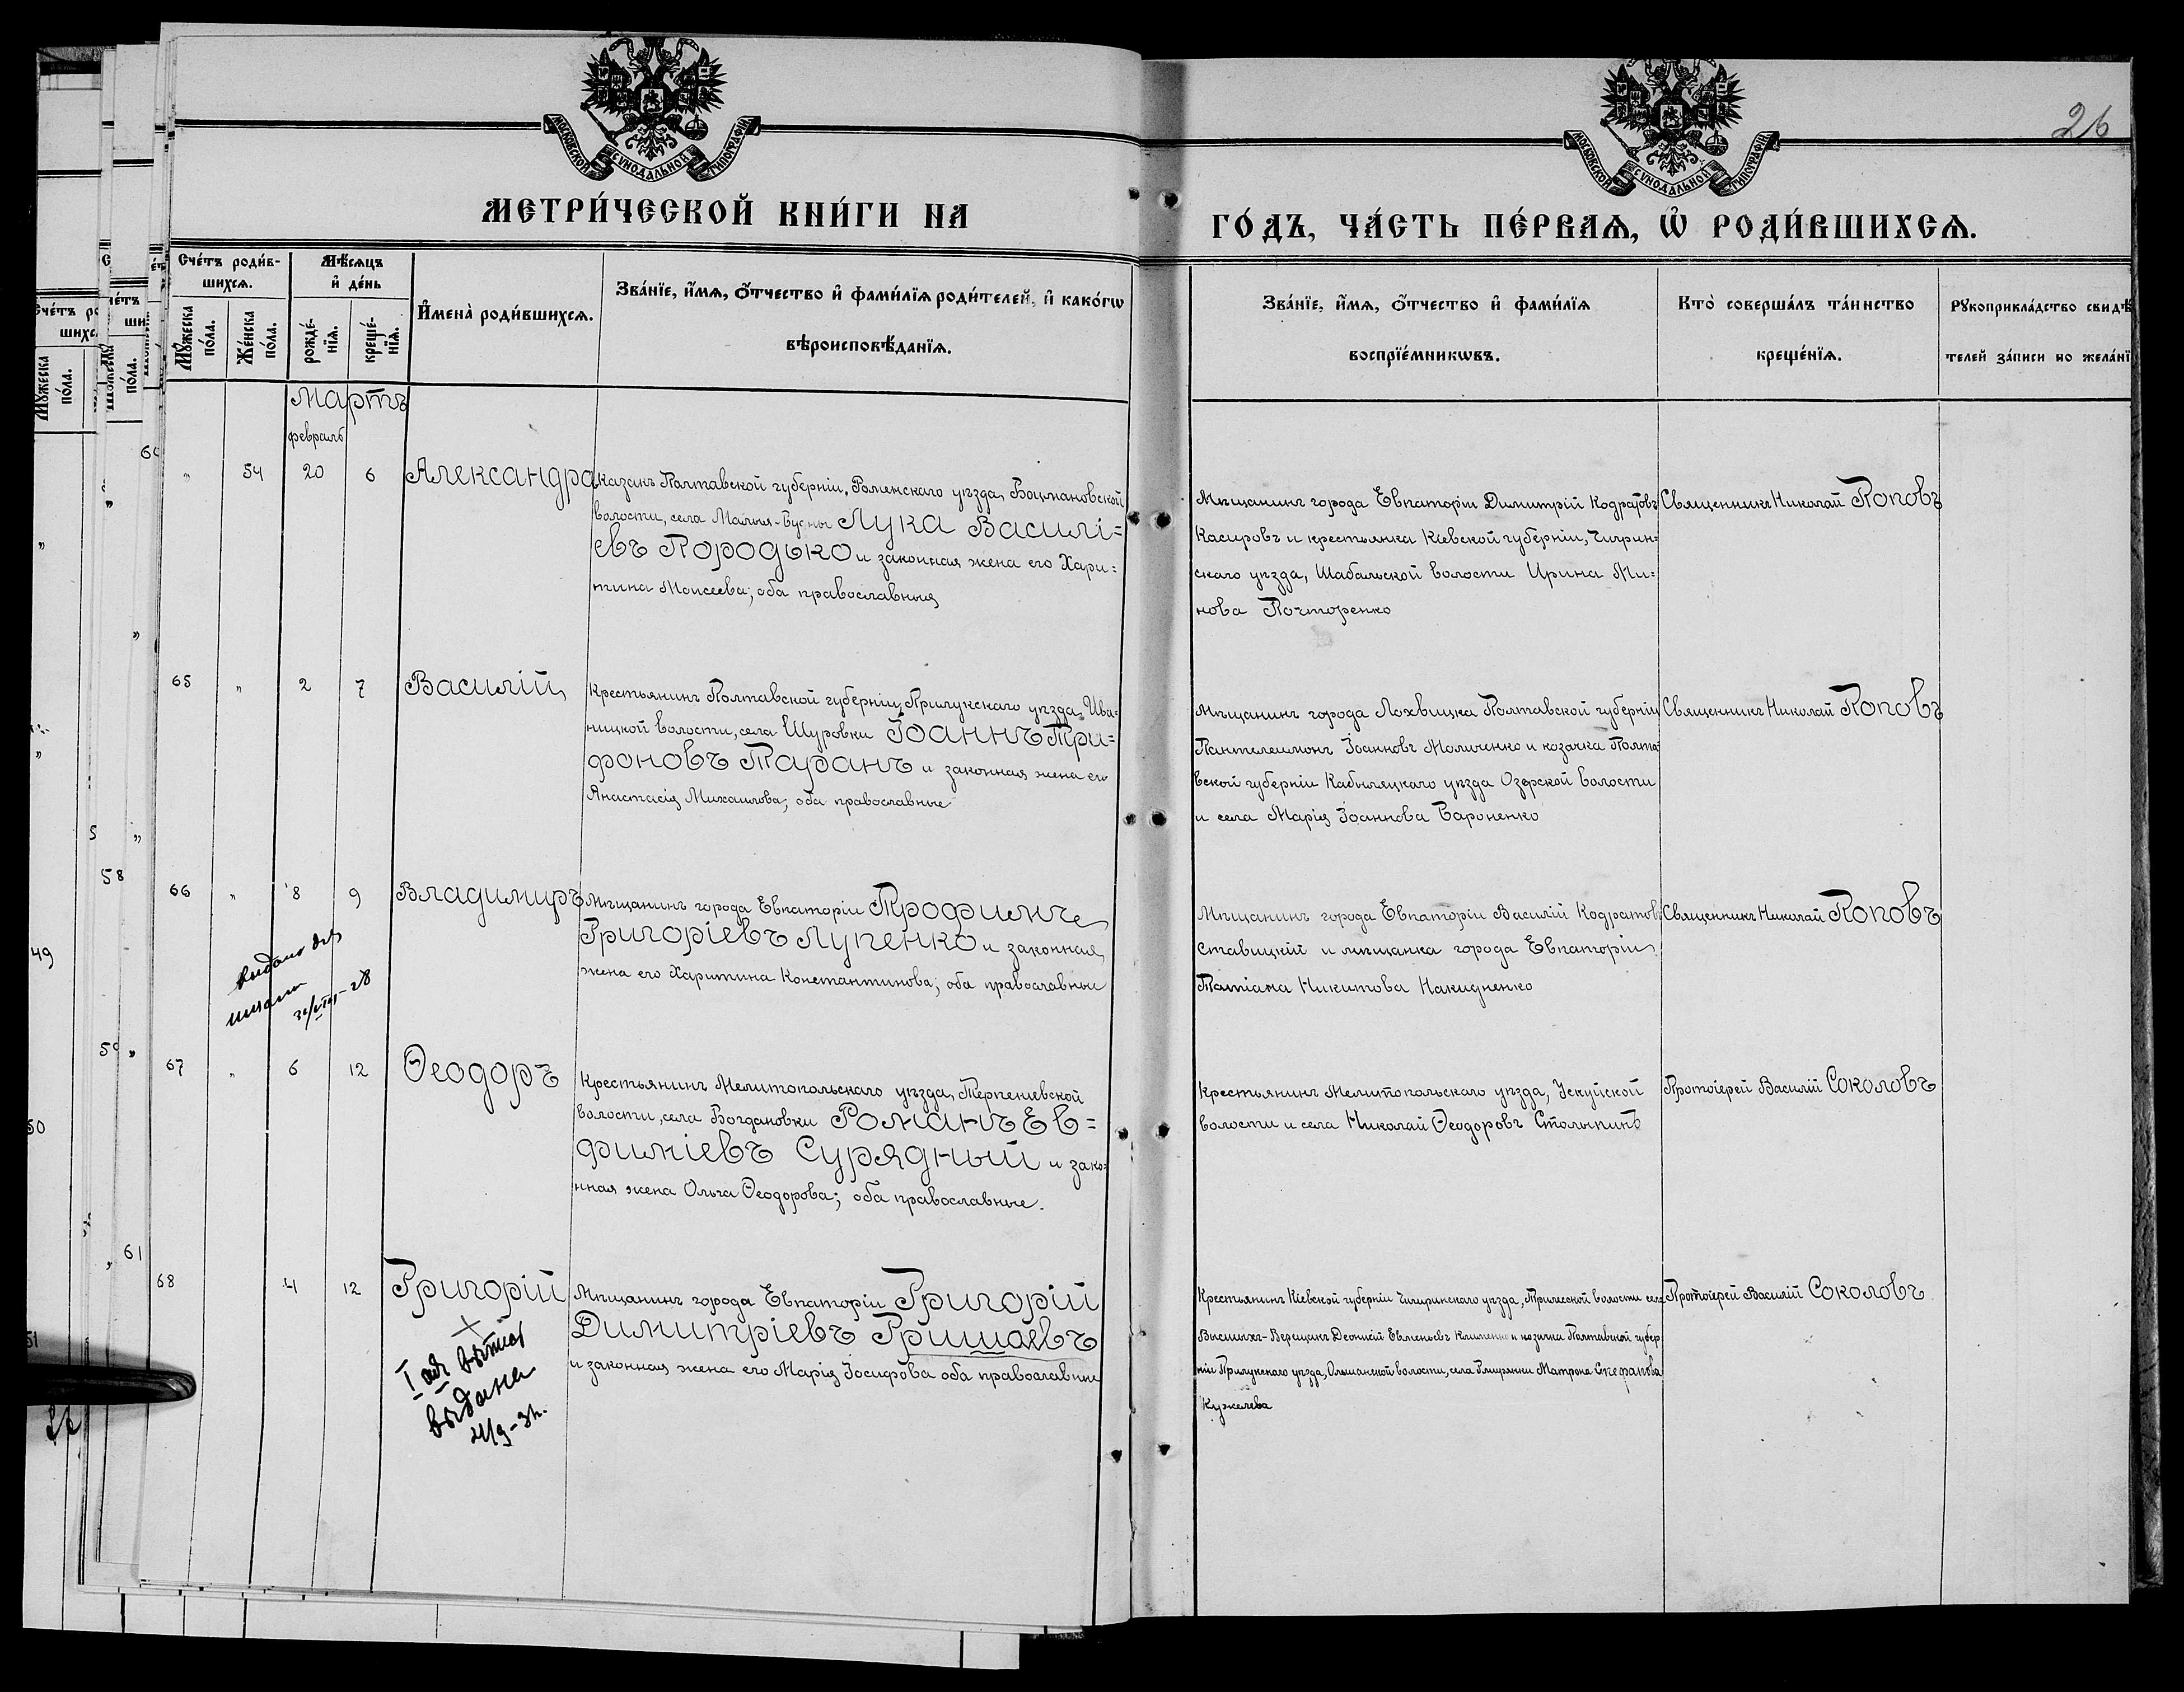 МОСКОВСКОЙ СѴНОДАЛЬНОЙ ТИПОГРАФІИ
МОСКОВСКОЙ СѴНОДАЛЬНОЙ ТИПОГРАФІИ
26
МЕТРИ́ЧЕСКОЙ КНИ́ГИ НА
ГО́ДЪ, ЧА́СТЬ ПЕ́РВАѦ, Ѡ҆ РОДИ́ВШИХСѦ.
Сче́тъ роди́в-
шихсѧ.
Мѣ́сѧцъ
и҆ де́нь
Мꙋ́жеска
по́ла.
Же́нска
по́ла.
рожде́-
нїѧ.
креще́-
нїѧ.
И҆мена̀ роди́вшихсѧ.
Зва́нїе, и҆́мѧ, ѻ҆́тчество и҆ фами́лїѧ роди́телей, и҆ како́гѡ
вѣроисповѣ́данїѧ.
Зва́нїе, и҆́мѧ, ѻ҆́тчество и҆ фами́лїѧ
воспрїе́мникѡвъ.
Кто̀ соверша́лъ та́инство
креще́нїѧ.
Рꙋкоприкла́дство свидѣ́
телей за́писи по жела́нї
Мартъ
февраль
„ 54 20 6 Александра
Казакъ Полтавской губерніи, Роменскаго уѣзда, Боцмановской
волости, села Малыя-Бубны Лука Василі=
евъ Породько и законная жена его Хари=
тина Моисеева; оба православныя
Мѣщанинъ города Евпаторіи Димитрій Кодратовъ
Касировъ и крестьянка Кіевской губерніи, Чигрин=
скаго уѣзда, Шабельской волости Ирина Ми=
нова Почторенко
Священникъ Николай Поповъ
65 „ 2 7 Василій
Крестьянинъ Полтавской губерніи, Прилукскаго уѣзда, Ива=
ницкой волости, села Щуровки Іоаннъ Три=
фоновъ Таранъ и законная жена его
Анастасія Михаилова; оба православные
Мѣщанинъ города Лохвицка Полтавской губерніи
Пантелеимонъ Іоанновъ Моличенко и козачка Полта=
вской губерніи Кабыляцкаго уѣзда Озерской волости
и села Марія Іоаннова Вароненко
Священникъ Николай Поповъ
66 „ 8 9 Владимиръ
Мѣщанинъ города Евпаторіи Трофимъ
Григоріевъ Лупенко и законная
жена его Харитина Константинова; оба православные
Мѣщанинъ города Евпаторіи Василій Кодратов
Ставицкій и мѣщанка города Евпаторіи
Татіана Никитова Накидненко
Священникъ Николай Поповъ
выдано
67 „ 6 12 Ѳеодоръ
Крестьянинъ Мелитопольскаго уѣзда, Терпеніевской
волости, села Богдановки Романъ Ев=
фиміевъ Сурядный и зако=
нная жена Ольга Ѳеодорова; оба православные.
Крестьянинъ Мелитопольскаго уѣзда, Ускуйской
волости и села Николай Ѳеодоровъ Столыпинъ
Протоіерей Василій Соколовъ
68 4 12 Григорій
Мѣщанинъ города Евпаторіи Григорій
Димитріевъ Гришаевъ
и законная жена его Марія Іосифова оба православные
Крестьянинъ Кіевской губерніи Чигиринскаго уѣзда, Трилесской волости села
Высшихъ-Верещакъ Деонисій Евменьевъ Клименко и козачка Полтавской губер=
ніи Прилукскаго уѣзда, Ольшанской волости, села Гмирянки Матрона Стефанова
Кужелева
Протоіерей Василій Соколовъ
выдана